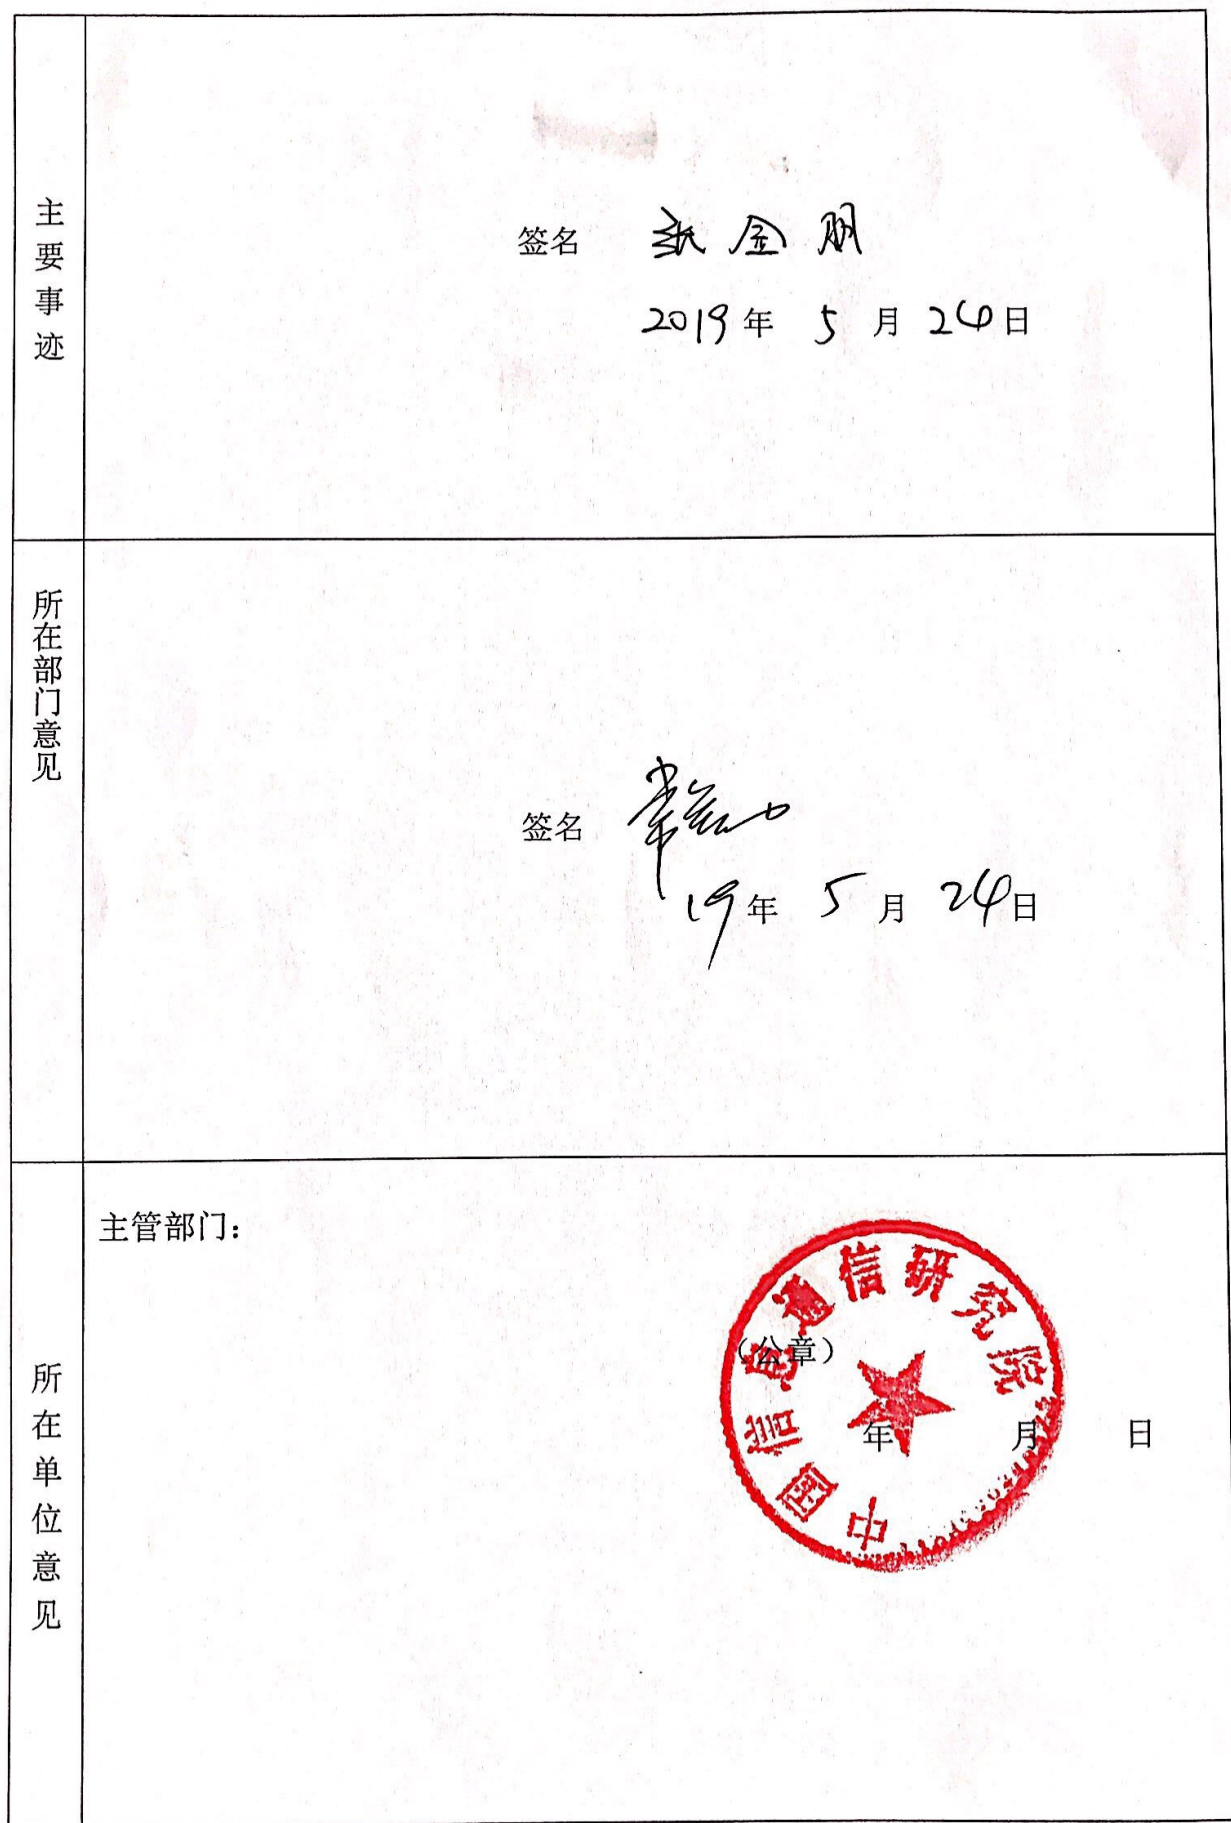 主要事迹
签名 张金朋
2019年 5月 24日
所在部门意见
签名
19年 5月 24日
所在单位意见
主管部门:
中国信息通信研究院
(公章)
年 月 日